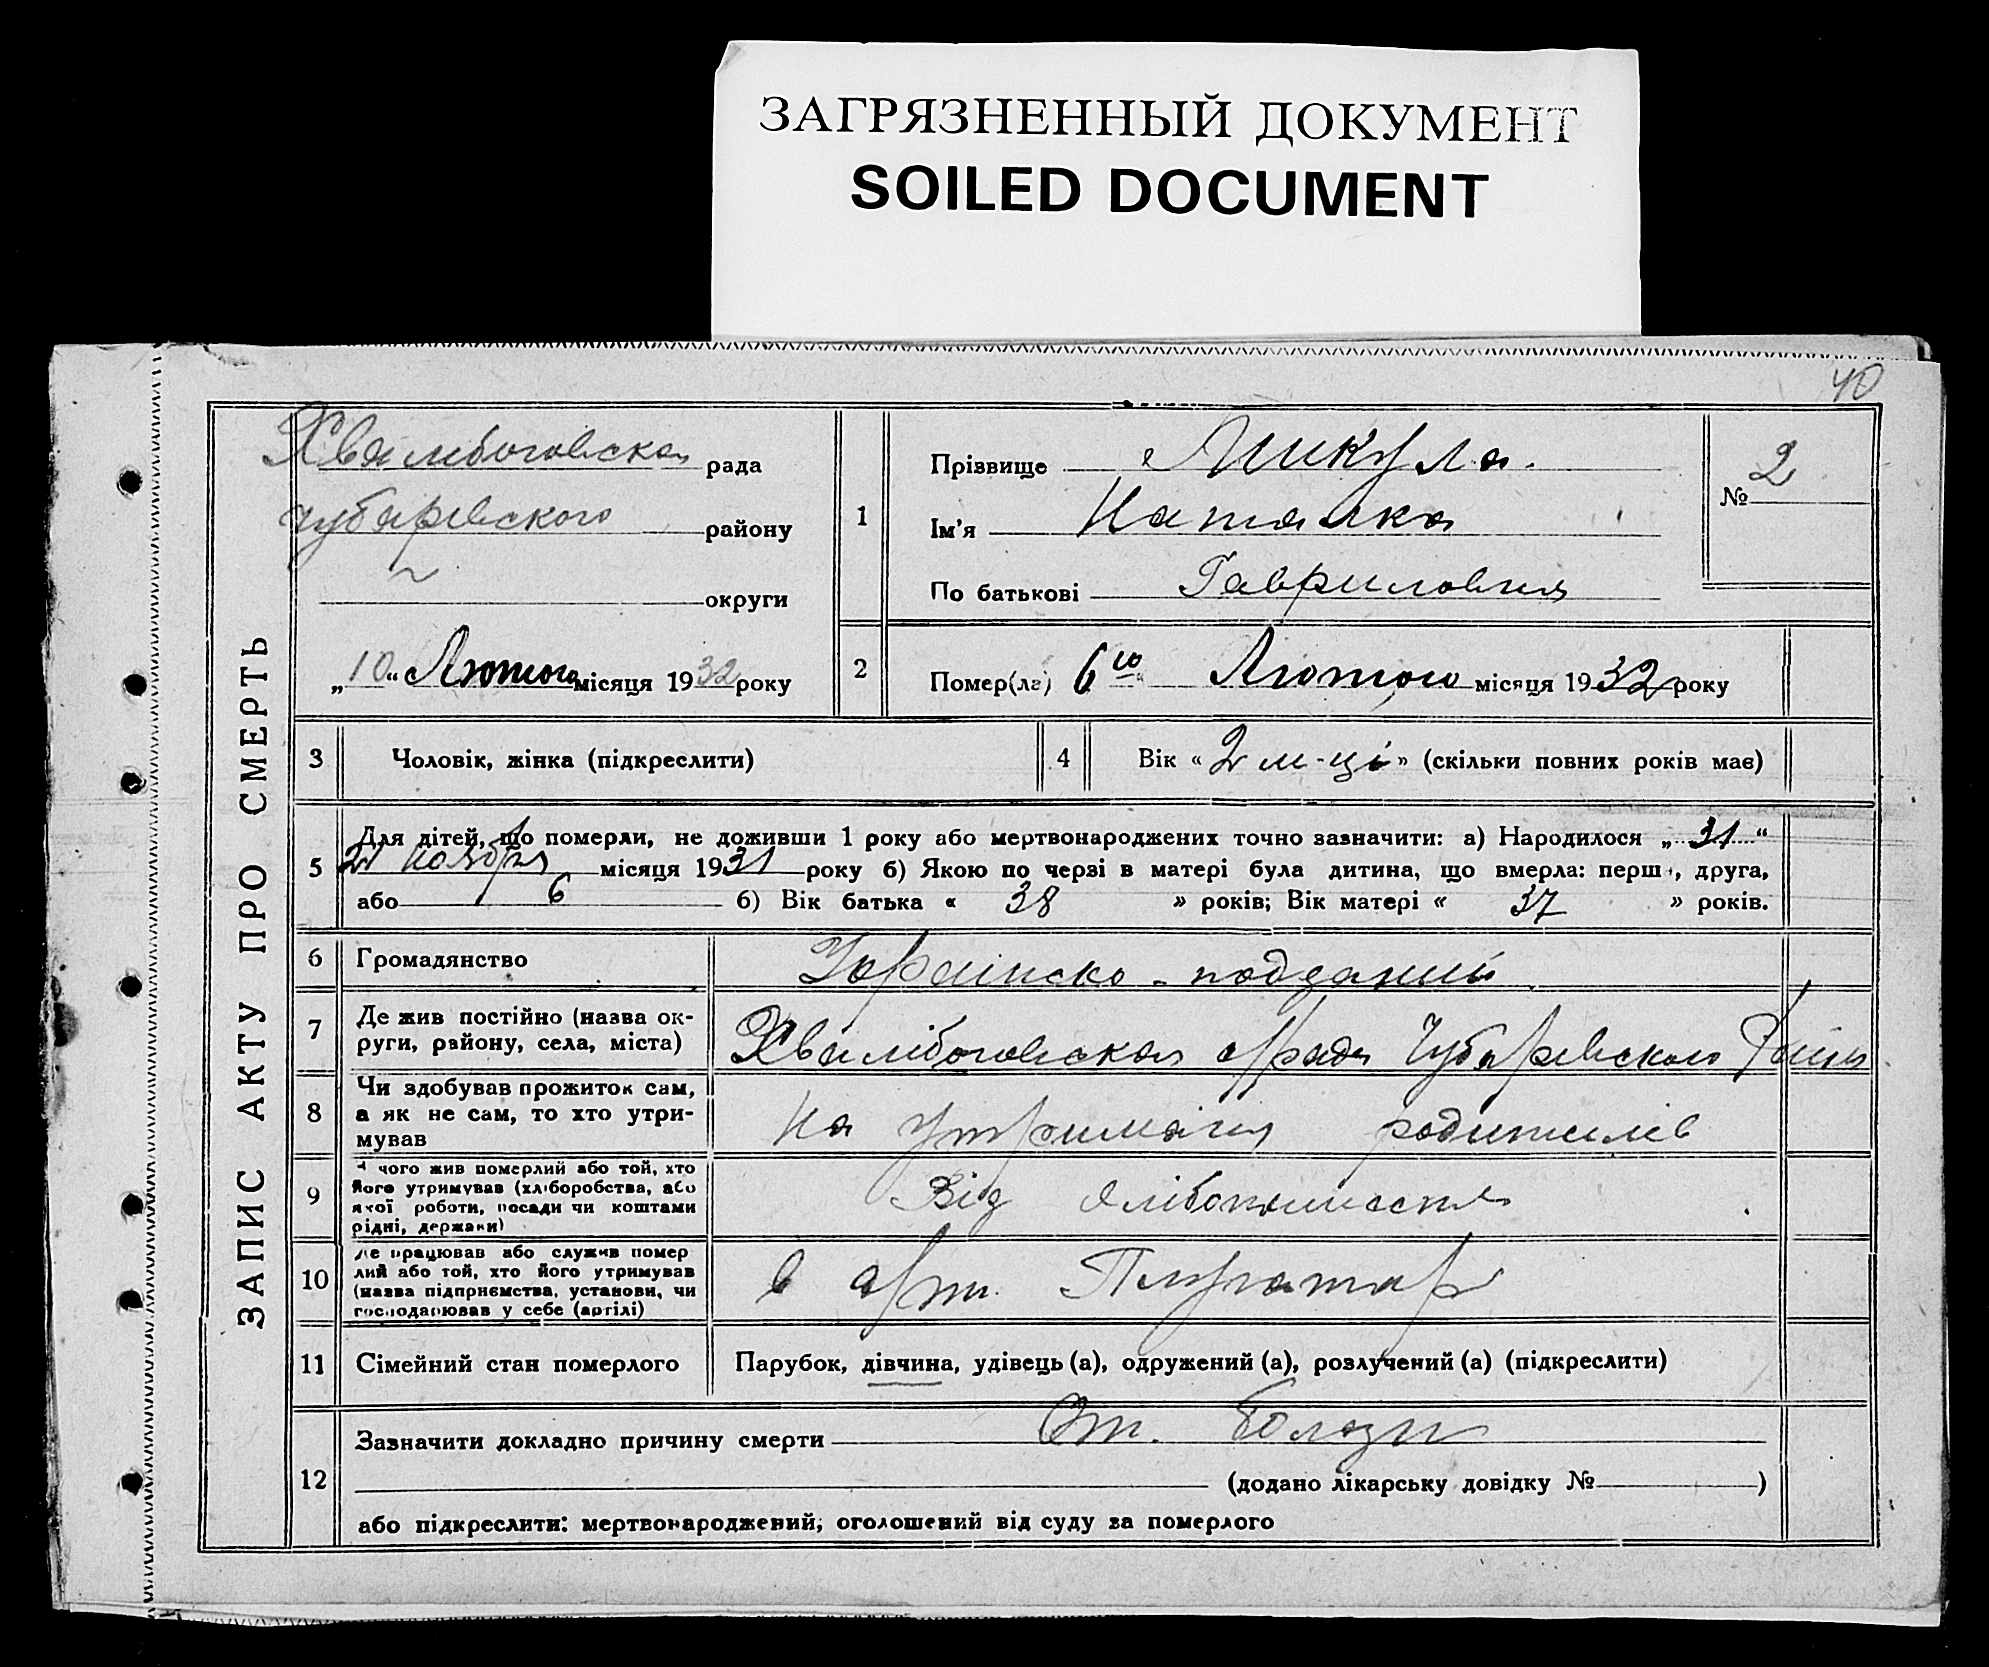 ЗАГРЯЗНЕННЫЙ ДОКУМЕНТ
SOILED DOCUMENT
40
ЗАПИС АКТУ ПРО СМЕРТЬ
Хвалибоговская рада
Чубаревского району
округи
„10“ Лютого місяця 1932 року
1
Прізвище Микула.
Ім'я Наталка
По батькові Гавриловня
№ 2
2
Помер(ла) 6го Лютого місяця 1932 року
3 Чоловік, жінка (підкреслити)
4 Вік «2 м-ці» (скільки повних років має)
5 Для дітей, що померли, не доживши 1 року або мертвонароджених точно зазначити: а) Народилося „31“
ноября місяця 1931 року б) Якою по черзі в матері була дитина, що вмерла: перша, друга,
або 6 б) Вік батька « 38 » років; Вік матері « 37 » років.
6 Громадянство Украінско-подданий
7 Де жив постійно (назва округи, району, села, міста) Хвалібоговская рада Чубаревского Району
8 Чи здобував прожиток сам, а як не сам, то хто утримував На утриманя родителів
9 З чого жив померлий або той, хто його утримував (хліборобства, або якої роботи, посади чи коштами рідні, держави) Від
10 Де працював або служив померлий або той, хто його утримував (назва підприємства, установи, чи господарював у себе (артілі) в арт. Плугатар
11 Сімейний стан померлого Парубок, дівчина, удівець (а), одружений (а), розлучений (а) (підкреслити)
12 Зазначити докладно причину смерти От.
(додано лікарську довідку № )
або підкреслити: мертвонароджений, оголошений від суду за померлого